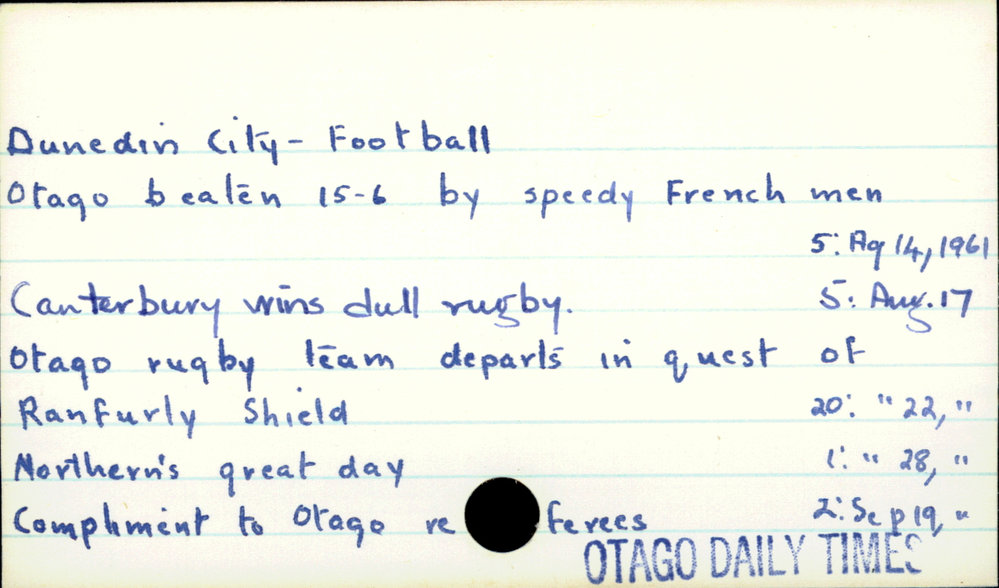 Dunedin City - Football
Otago beaten 15-6 by speedy French men
5: Ag 14, 1961
Canterbury wins dull rugby. 5: Aug. 17
Otago rugby team departs in quest of
Ranfurly Shield 20: " 22, "
Northern's great day 1: " 28, "
Compliment to Otago re ferees 2: Sep 19, "
OTAGO DAILY TIMES